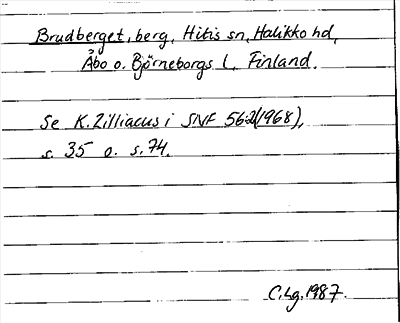 Brudberget, berg, Hitis sn, Halikko hd,
Åbo o. Björneborgs l, Finland.
Se K. Zilliacus i SNF 56:2(1968),
s. 35 o. s. 74.
C.Lg. 1987.